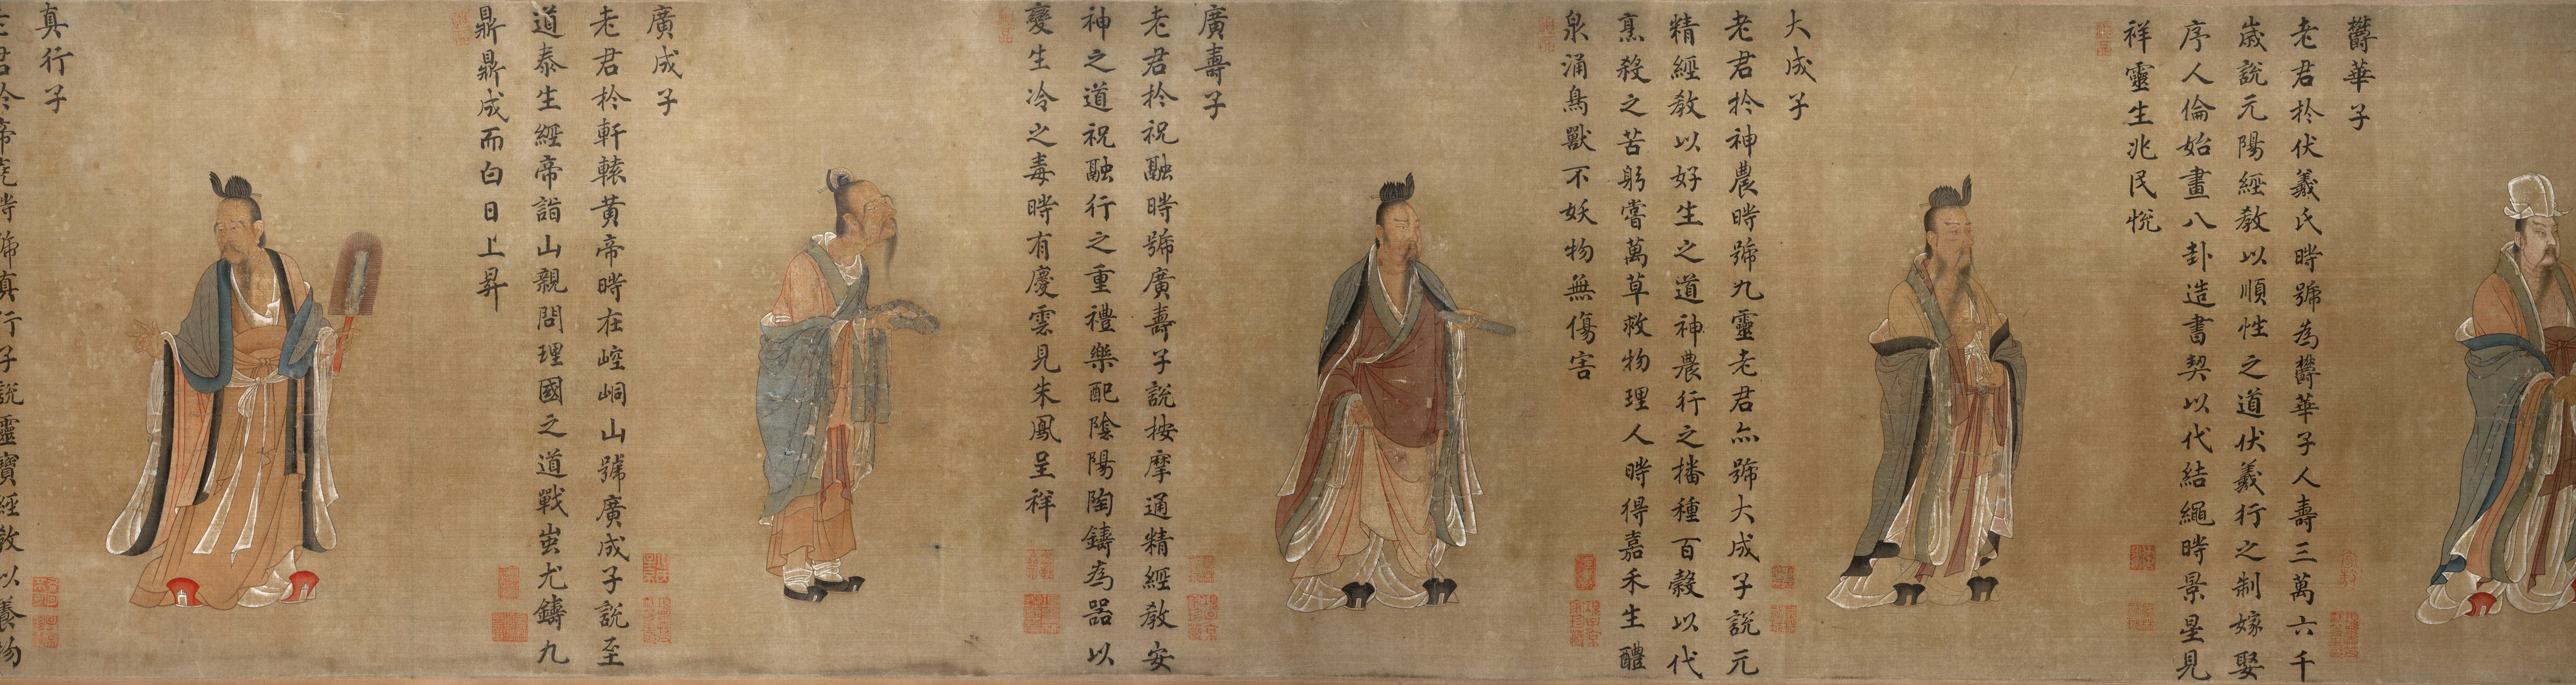 欝華子
老君扵伏羲氏時號為欝華子人壽三萬六千
歳說元陽經教以順性之道伏羲行之制嫁娶
序人倫始畫八卦造書契以代結繩時景星見
祥靈生兆民恱
大成子
老君扵神農時號九靈老君亦號大成子說元
精經教以好生之道神農行之播種百穀以代
烹殺之苦躬嘗萬草救物理人時得嘉禾生醴
泉涌鳥獸不妖物無傷害
廣壽子
老君扵祝融時號廣壽子說按摩通精經教安
神之道祝融行之重禮樂配陰陽陶鑄為器以
變生冷之毒時有慶雲見朱鳳呈祥
廣成子
老君扵軒轅黃帝時在崆峒山號廣成子說至
道泰生經帝詣山親問理國之道戰蚩尤鑄九
鼎鼎成而白日上昇
真行子
老君扵帝嚳時號真行子說靈寶經教以養物